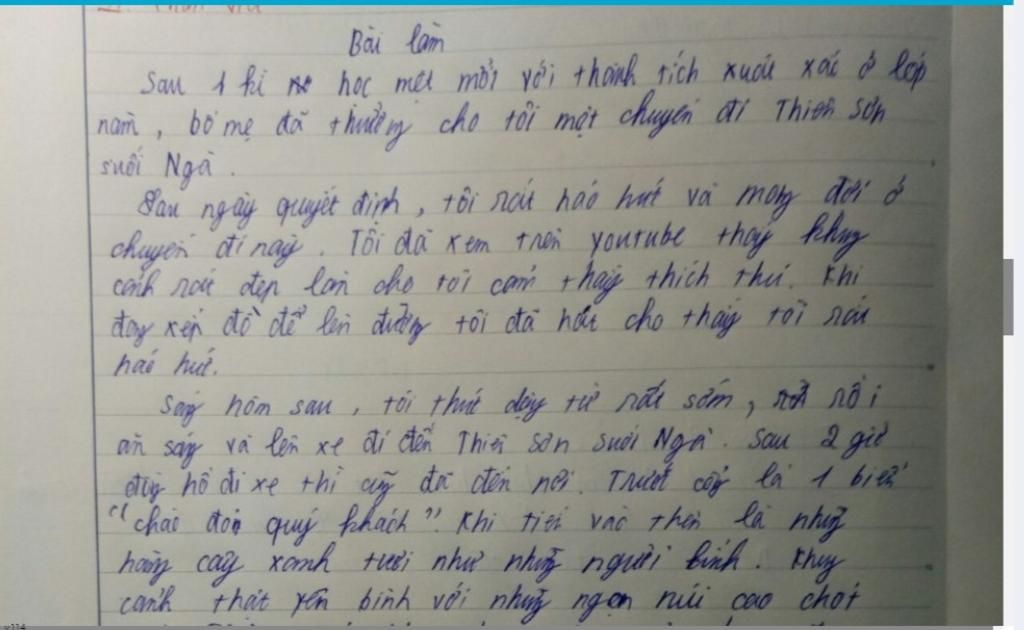 Bài làm
Sau 1 kì học mệt mỏi với thành tích xuất xắc ở lớp
năm, bố mẹ đã thưởng cho tôi một chuyến đi Thiên Sơn
suối Ngà.
Sau ngày quyết định, tôi rất háo hức và mong đợi ở
chuyến đi này. Tôi đã xem trên youtube thấy khung
cảnh rất đẹp làm cho tôi cảm thấy thích thú. Khi
đang xếp đồ để lên đường tôi đã hát cho thấy tôi rất
háo hức.
Sáng hôm sau, tôi thức dậy từ rất sớm, rồi
ăn sáng và lên xe đi đến Thiên Sơn suối Ngà. Sau 2 giờ
đồng hồ đi xe thì cũng đã đến nơi. Trước cổng là 1 biển
"chào đón quý khách". Khi tiến vào thêm là những
hàng cây xanh tươi như những người lính. Khung
cảnh thật yên bình với những ngọn núi cao chót